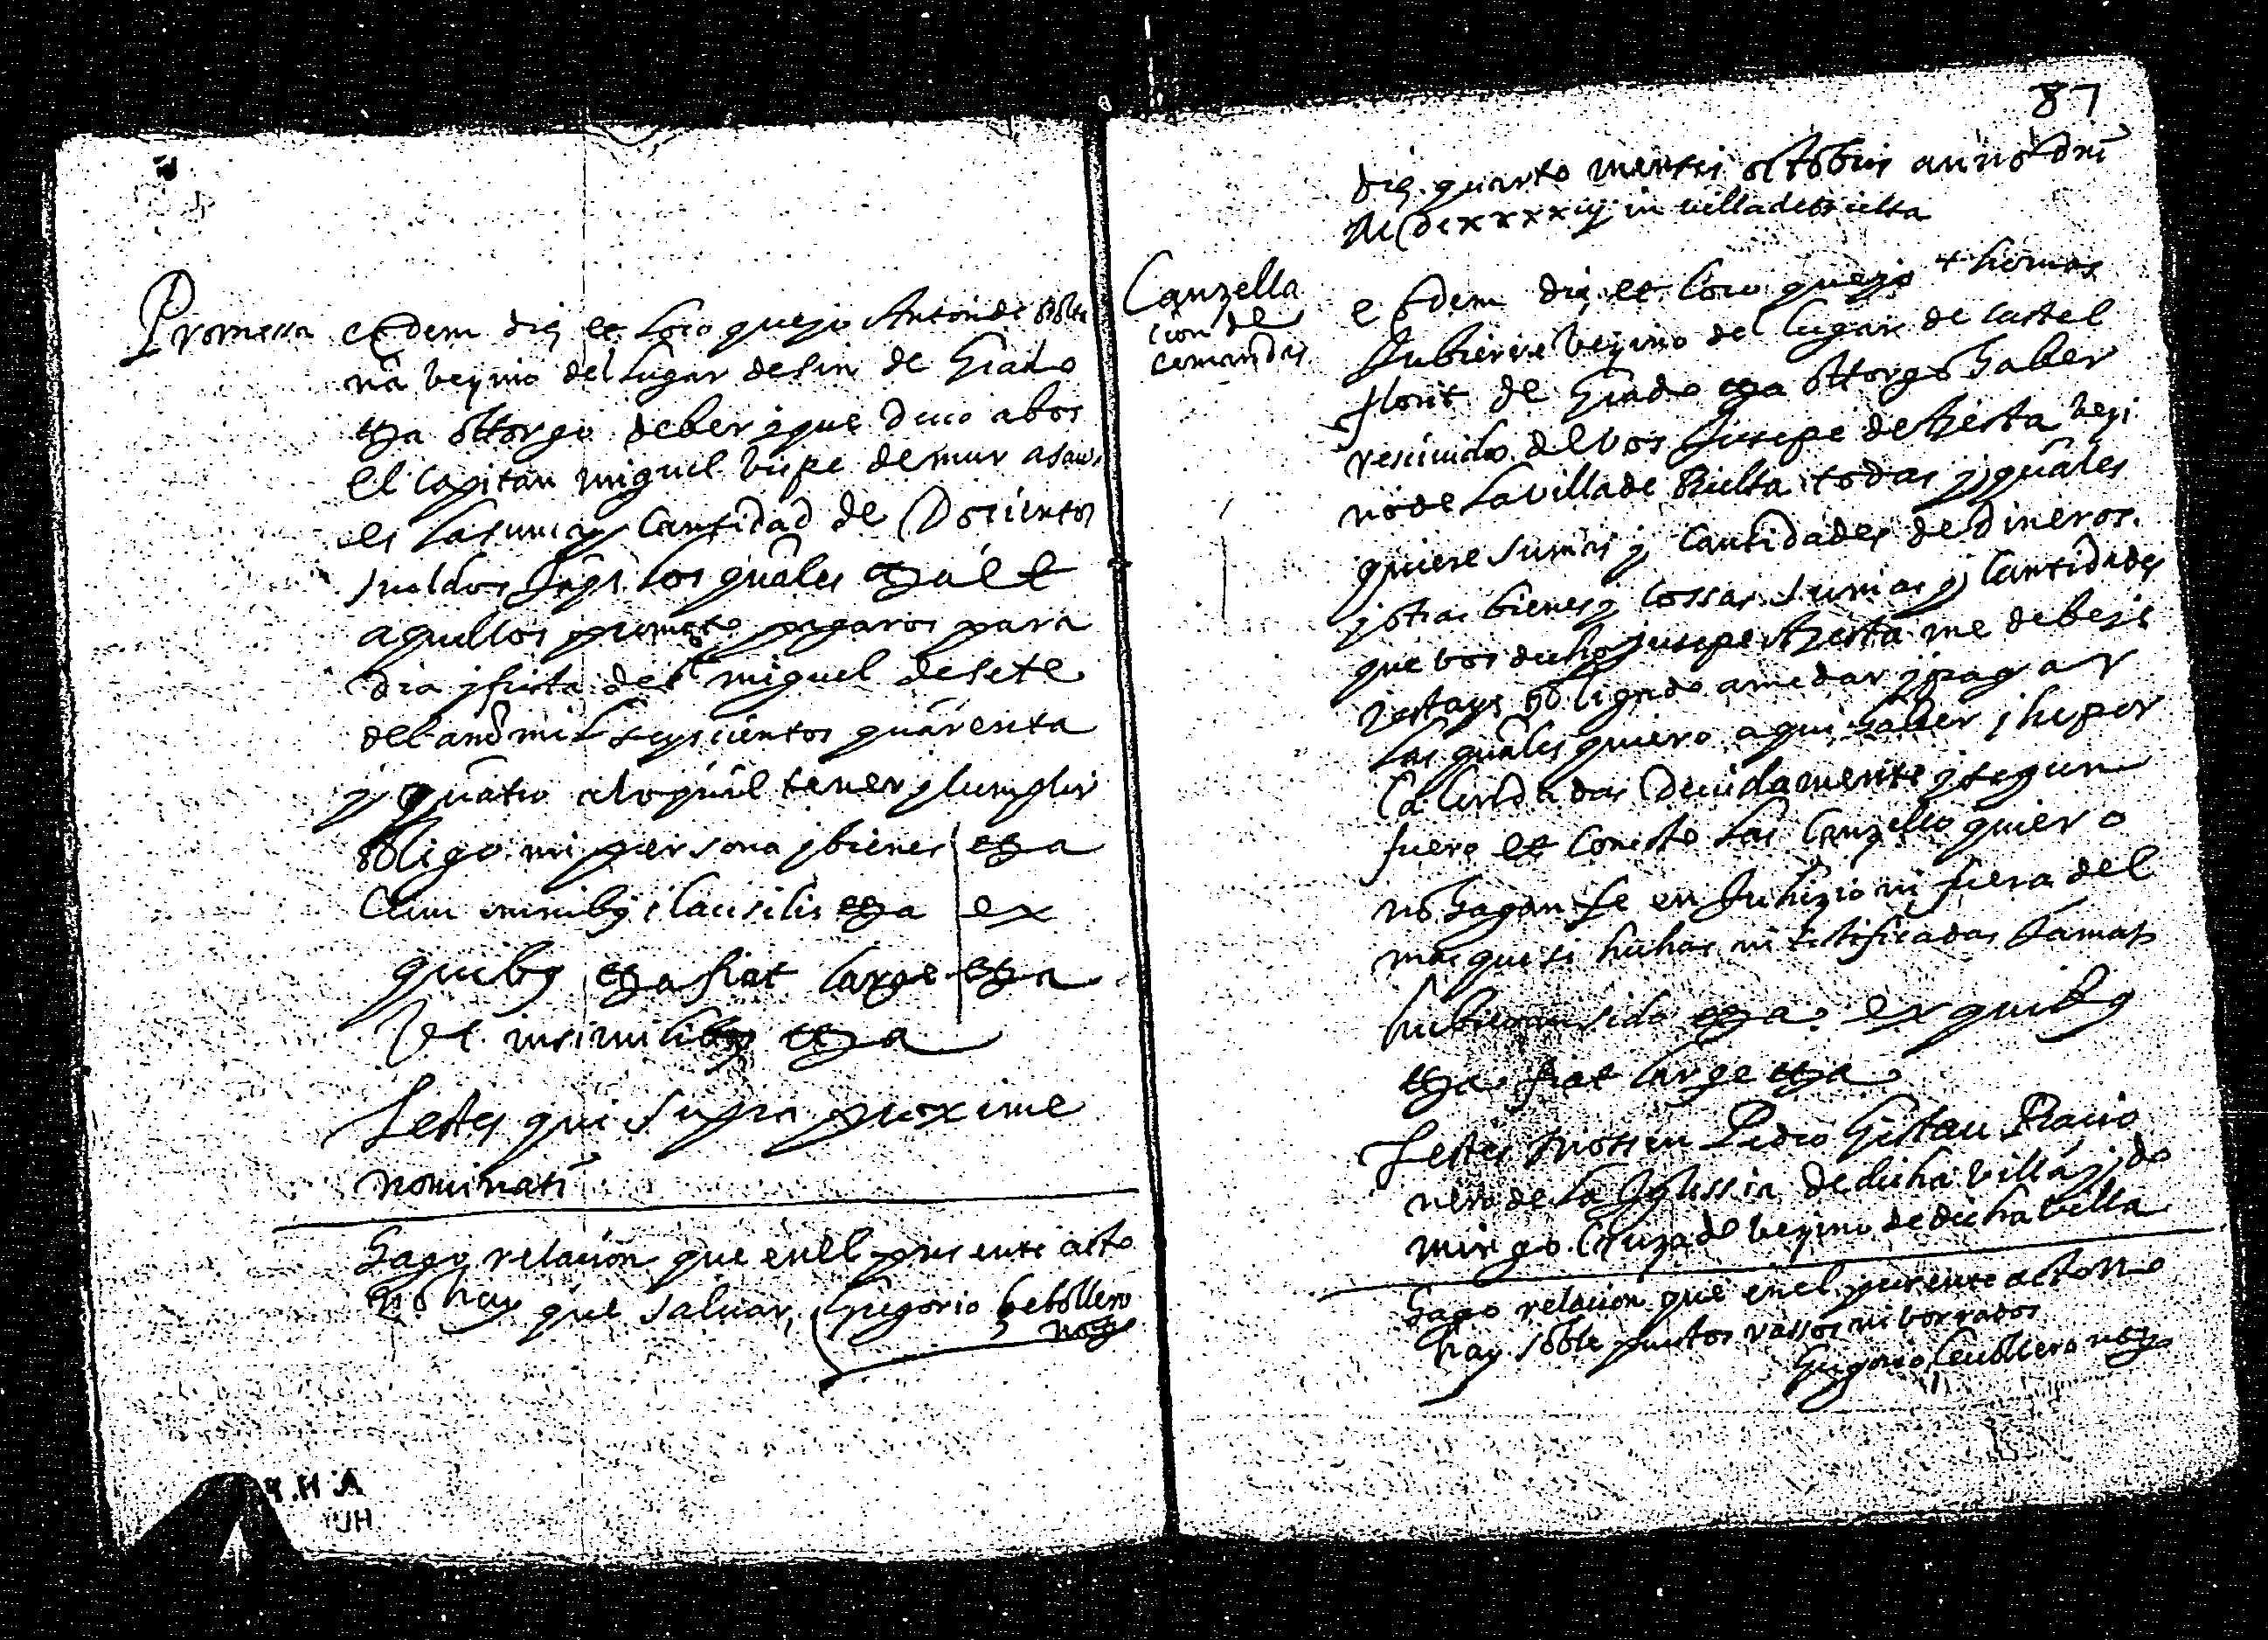 Promessa
eodem die et loco que yo Anton de
na vezino del lugar de sin de Grado
etza ottorgo deber y que deuo a bos
el capitan miguel bispe de mur a saui
es la suma y cantidad de Docientos
sueldos Jaqs. los quales etza et
aquellos prometo pagaros para
dia y fiesta de S miguel de sete
del año mil seyscientos quarenta
y quatro a lo qual tener y cumplir
obligo mi persona y bienes etza
Cum omnibus clausulis etza ex
quibus etza fiat large etza
ut in similibus etza
Testes qui supra proxime
nominati
Hago relacion que en el presente acto
no hay que saluar, Gregorio Cebollero
notº
87
die quarto mensis octobris anno dni
MDCxxxxiij in villa de Bielsa
Canzella
cion de
comandas
eodem die et loco que yo thomas
Subierre vezino del lugar de castel
florit de Grado etza ottorgo haber
rescivido de vos Jusepe de Azesta vezi
no de la villa de Bielsa todas y quales
quiere sumas y cantidades de dineros
y otras bienes y cossas sumas y cantidades
que vos dicho jusepe Azesta me debeys
y estays obligado a me dar y pagar
las quales quiero aqui haber y he por
calendadas devidamente y segun
fuero et con esto las canzello quiero
no hagan fe en Juhizio ni fuera del
mas que si hechas ni testificadas Jamas
hubieran sido etza ex quibus
etza fiat large etza
Testes Mossen Pedro Gistau Racio
nero de la Iglessia de dicha villa y do
mingo vezino de dicha villa
Hago relacion que en el presente acto no
hay sobre puestos rassos ni borrados
Gregorio Ceuollero notº
A.H.P.
HU